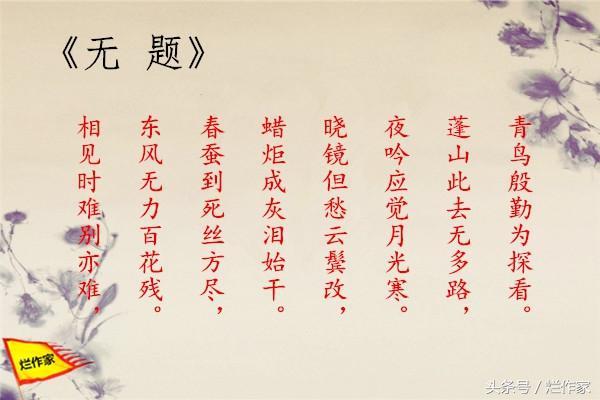 《无 题》
相见时难别亦难，
东风无力百花残。
春蚕到死丝方尽，
蜡炬成灰泪始干。
晓镜但愁云鬓改，
夜吟应觉月光寒。
蓬山此去无多路，
青鸟殷勤为探看。
烂作家
头条号 / 烂作家